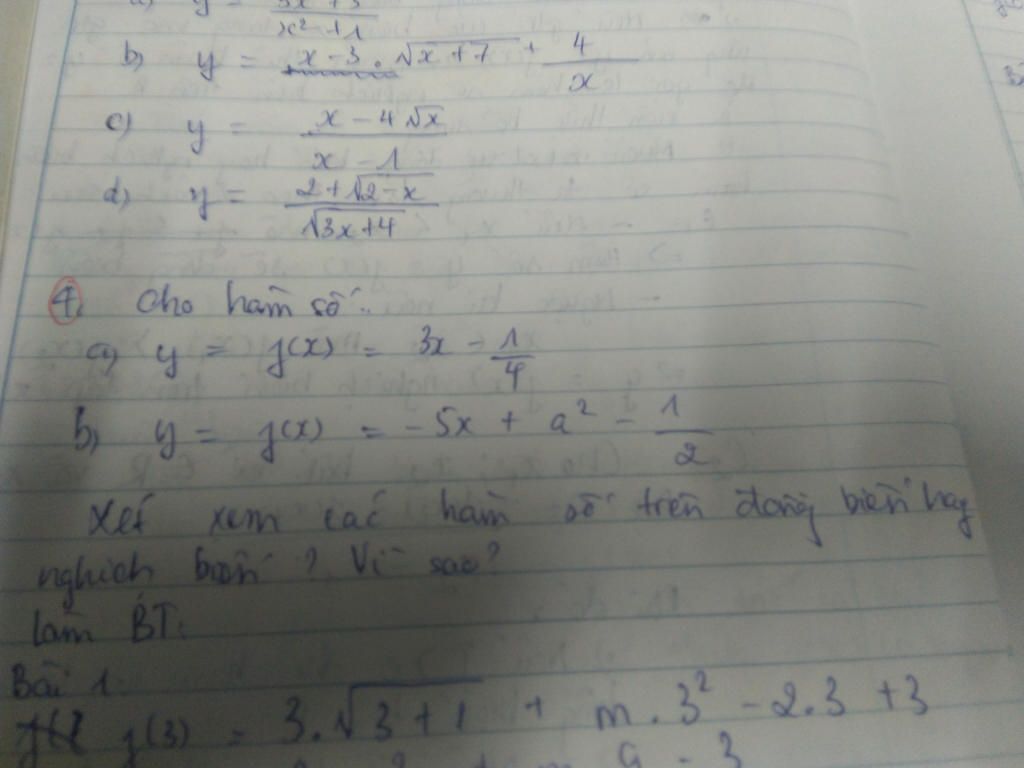 a) y = 3x+3 / x²+1
b) y = x-3.√x+7 + 4/x
c) y = x - 4√x / x - 1
d) y = 2+√2-x / √3x+4
4. Cho hàm số:
a) y = f(x) = 3x - 1/4
b) y = f(x) = -5x + a² - 1/2
Xét xem các hàm số trên đồng biến hay
nghịch biến? Vì sao?
Làm BT:
Bài 1.
f(3) = 3.√3+1 + m.3² - 2.3 + 3